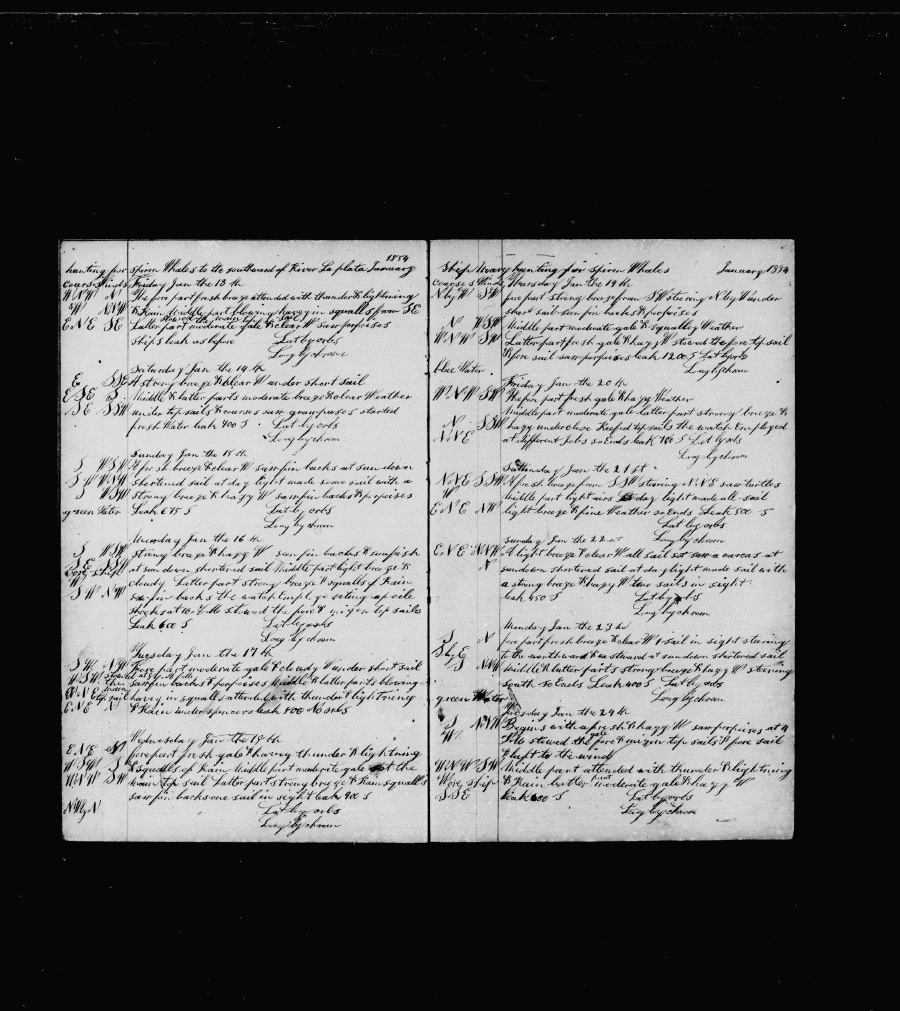 1854
hunting for sperm Whales to the southward of River La plata January
Courses Winds Friday Jan the 13 th
WNW N The fore part fresh breeze attended with thunder & lightning
W NNW & Rain Middle part blowing heavy in squalls from SE
stowed the main top sail
ENE SE Latter part moderate gale & clear W saw porpoises
Ships leak as before Lat by orbs
Long by chrom
Saturday Jan the 14 th
E SSE A strong breeze & clear W under short sail
ESE S Middle & latter parts moderate breeze & clear Weather
SE SSW under top sails & courses saw grampuses started
fresh Water leak 400 S Lat by orbs
Long by chrom
Sunday Jan the 15 th
S WSW A fresh breeze & clear W saw fin backs at sun down
SW WNW shortened sail at day light made some sail with a
S WSW strong breeze & hazy W saw fin backs & porpoises
green Water Leak 675 S Lat by orbs
Long by chrom
Monday Jan the 16 th
S WSW strong breeze & hazy W saw fin backs & sunfish
SE SSW at sun down shortened sail Middle part light breeze &
Wore ship
W cloudy Latter part strong breeze & squalls of Rain
SW NW saw fin backs the watch employ seting up oile
shooks at 10 AM stowed the fore & mizen top sailes
Leak 600 S Lat by orbs
Long by chrom
Tuesday Jan the 17 th
SW NW Fore part moderate gale & cloudy W under short sail
WSW saw fin backs & porpoises Middle & latter parts blowing
stowed the main top sail
ENE heavy in squalls attended with thunder & lightning
ENE N & Rain under spencers leak 400 No orbs
Wednesday Jan the 18 th
ENE forepart fresh gale & heavy thunder & lightning
WSW S & squalls of Rain Middle part moderate gale set the
WNW SW main top sail Latter part strong breeze & Rain squalls
saw fin backs one sail in sight leak 900 S
N Lat by orbs
Long by chrom
Ship hunting for sperm Whales January 1854
Courses Winds Thursday Jan the 19 th
N by W SW fore part strong breeze from SW steering N by W under
short sail saw fin backs & porpoises
N WSW Middle part moderate gale & squally Weather
WNW SW Latter part fresh gale & hazy W stowed the fore top sail
& fore sail saw porpoises leak 1200 S Lat by orbs
blue Water Long by chrom
Friday Jan the 20 th
WNW SW The fore part fresh gale & hazy Weather
Middle part moderate gale latter part strong breeze &
N SSW hazy under close Reefed top sails the watch Employed
NNE at different Jobs so Ends leak 700 S Lat by orbs
Long by chrom
Saturday Jan the 21 st
NNE SSW A fresh breeze from SSW steering NNE saw turtles
W Middle part light airs day light made all sail
ENE NW light breeze & fine Weather so Ends Leak 500 S
Lat by orbs
Sunday Jan the 22 Long by chrom
ENE NNW A light breeze & clear W all sail set saw a carcas at
N sundown shortened sail at day light made sail with
a strong breeze & hazy W two sails in sight
leak 450 S Lat by orbs
Long by chrom
Monday Jan the 23 rd
S N fore part fresh breeze & clear W 1 sail in sight steering
S by E to the northward & eastward at sun down shortened sail
S NNW Middle & latter parts strong breeze & hazy W steering
south so Ends Leak 400 S Lat by orbs
green Water Long by chrom
Tuesday Jan the 24 th
S NNW Begins with a fresh gale & hazy W saw porpoises at 4
W PM stowed the fore & mizen top sails & fore sail
& kept to the wind
WNW SW Middle part attended with thunder & lightning
Wore ship & Rain latter moderate gale & hazy W
SSE Leak 600 S Lat by orbs
Long by chrom